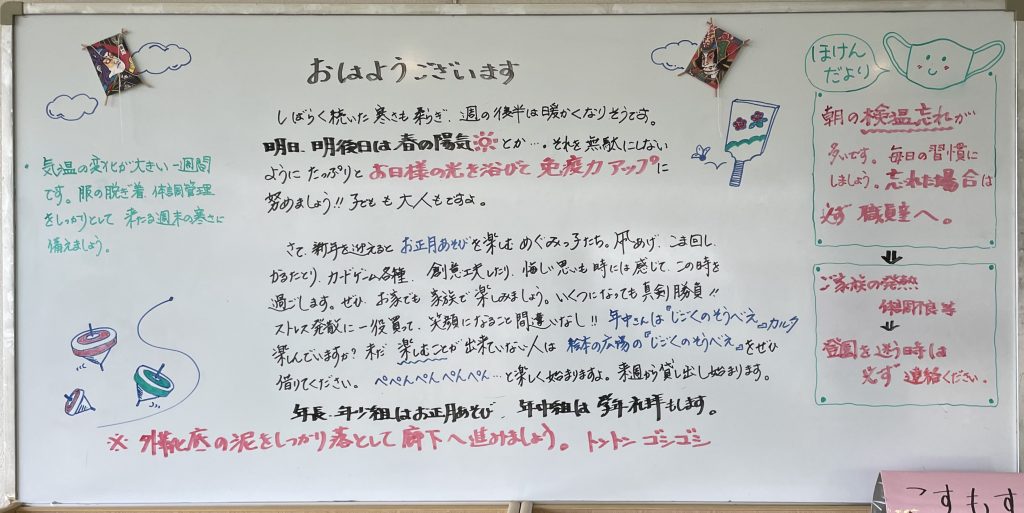 おはようございます
しばらく続いた寒さも柔らぎ、週の後半は暖かくなりそうです。
明日、明後日は春の陽気☀とか…。それを無駄にしない
ようにたっぷりとお日様の光を浴びて免疫力アップに
努めましょう!!子どもも大人もですよ。
さて、新年を迎えるとお正月あそびを楽しむめぐみっ子たち。凧あげ、こま回し、
かるたとり、カードゲーム各種、創意工夫したり、悔しい思いも時には感じて、この時を
過ごします。ぜひ、お家でも家族で楽しみましょう。いくつになっても真剣勝負!!
ストレス発散に一役買って、笑顔になること間違いなし!!年中さんは『じごくのそうべえ』カルタ
楽しんでいますか?まだ楽しむことが出来ていない人は絵本の広場の『じごくのそうべえ』をぜひ
借りてください。ぺぺんぺんぺんぺん…と楽しく始まりますよ。来週から貸し出し始まります。
年長、年少組はお正月あそび、年中組は学年礼拝もします。
※外靴底の泥をしっかり落として廊下へ進みましょう。トントンゴシゴシ
・気温の変化が大きい一週間
です。服の脱ぎ着、体調管理
をしっかりとして来たる週末の寒さに
備えましょう。
ほけん
だより
朝の検温忘れが
多いです。毎日の習慣に
しましょう。忘れた場合は
必ず職員室へ。
⇓
ご家族の発熱
体調不良等
⇓
登園を迷う時は
必ず連絡ください。
こすもす